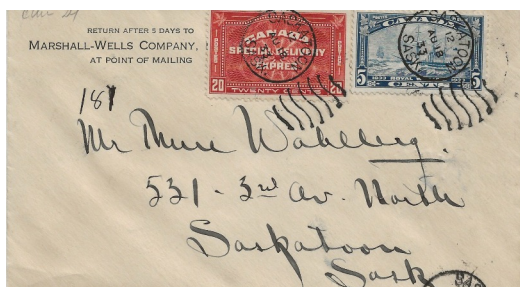 RETURN AFTER 5 DAYS TO
MARSHALL-WELLS COMPANY,
AT POINT OF MAILING
CANADA
SPECIAL DELIVERY
EXPRES
20 TWENTY CENTS 20
CANADA
1933 ROYAL
5 CENTS 5
SASKATOON
12
AU 18
33
SASK
181
Mr Mure Wahlberg.
531 - 3rd Av. North
Saskatoon
Sask